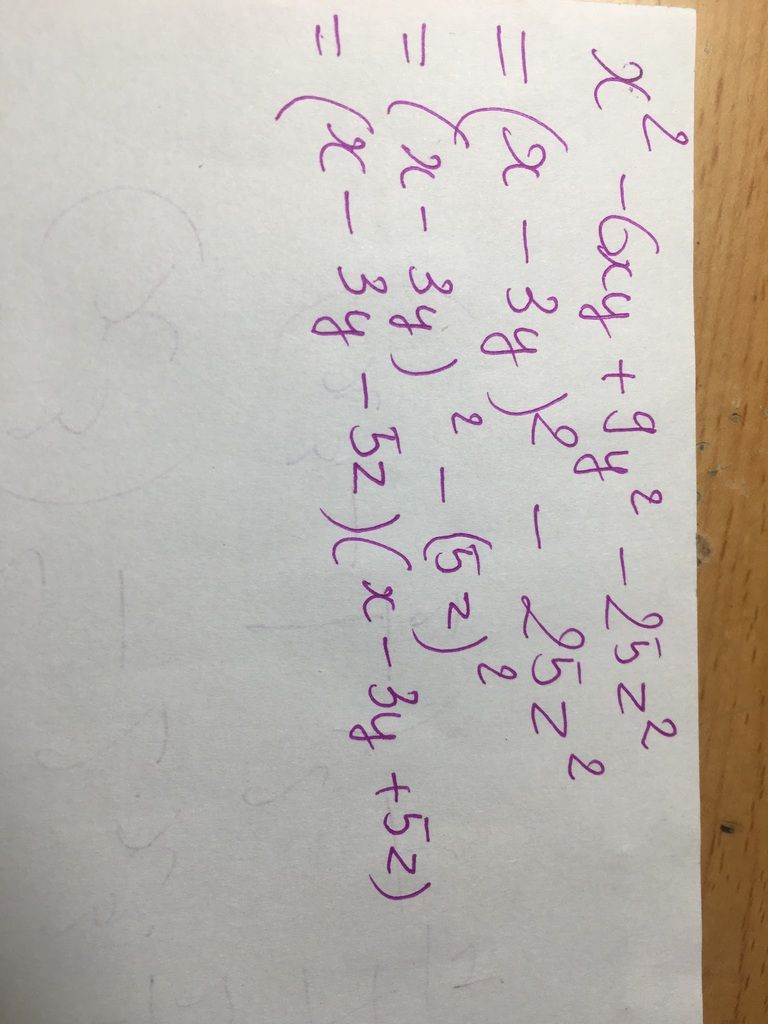 x² - 6xy + 9y² - 25z²
= (x - 3y)² - 25z²
= (x - 3y)² - (5z)²
= (x - 3y - 5z)(x - 3y + 5z)